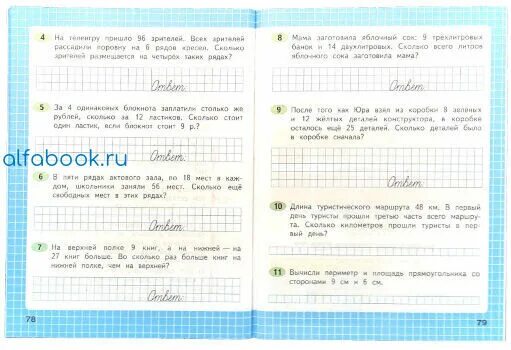 4 На телеигру пришло 96 зрителей. Всех зрителей
рассадили поровну на 6 рядов кресел. Сколько
зрителей размещается на четырёх таких рядах?
Ответ:
5 За 4 одинаковых блокнота заплатили столько же
рублей, сколько за 12 ластиков. Сколько стоит
один ластик, если блокнот стоит 9 р.?
Ответ:
alfabook.ru
6 В пяти рядах актового зала, по 18 мест в каж-
дом, школьники заняли 56 мест. Сколько ещё
свободных мест в этих рядах?
Ответ:
7 На верхней полке 9 книг, а на нижней — на
27 книг больше. Во сколько раз больше книг на
нижней полке, чем на верхней?
Ответ:
78
8 Мама заготовила яблочный сок: 9 трёхлитровых
банок и 14 двухлитровых. Сколько всего литров
яблочного сока заготовила мама?
Ответ:
9 После того как Юра взял из коробки 8 зелёных
и 12 жёлтых деталей конструктора, в коробке
осталось ещё 25 деталей. Сколько деталей было
в коробке сначала?
Ответ:
10 Длина туристического маршрута 48 км. В первый
день туристы прошли третью часть всего маршру-
та. Сколько километров прошли туристы в пер
вый день?
Ответ:
11 Вычисли периметр и площадь прямоугольника со
сторонами 9 см и 6 см.
79